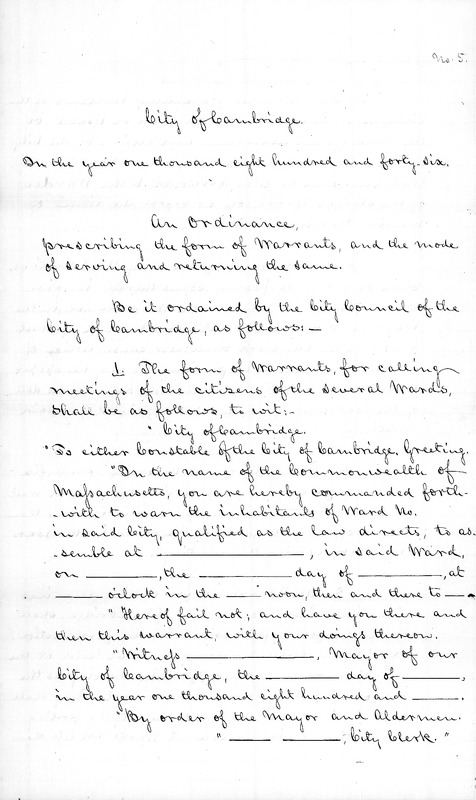 No. 5.
City of Cambridge.
In the year one thousand eight hundred and forty-six.
An Ordinance,
prescribing the form of Warrants, and the mode
of serving and returning the same.
Be it ordained by the City Council of the
City of Cambridge, as follows:—
1. The form of Warrants, for calling
meetings of the citizens of the several Wards,
shall be as follows, to wit:-
"City of Cambridge.
"To either Constable of the City of Cambridge, Greeting.
"In the name of the Commonwealth of
Massachusetts, you are hereby commanded forth-
-with to warn the inhabitants of Ward No.
in said City, qualified as the law directs, to as-
-semble at ________, in said Ward,
on ________, the ________ day of ________, at
________ o'clock in the ____ noon, then and there to ____
"Hereof fail not; and have you there and
then this warrant, with your doings thereon.
"Witness ________, Mayor of our
City of Cambridge, the ________ day of ________,
in the year one thousand eight hundred and ____.
"By order of the Mayor and Aldermen.
"____ ____, City Clerk."